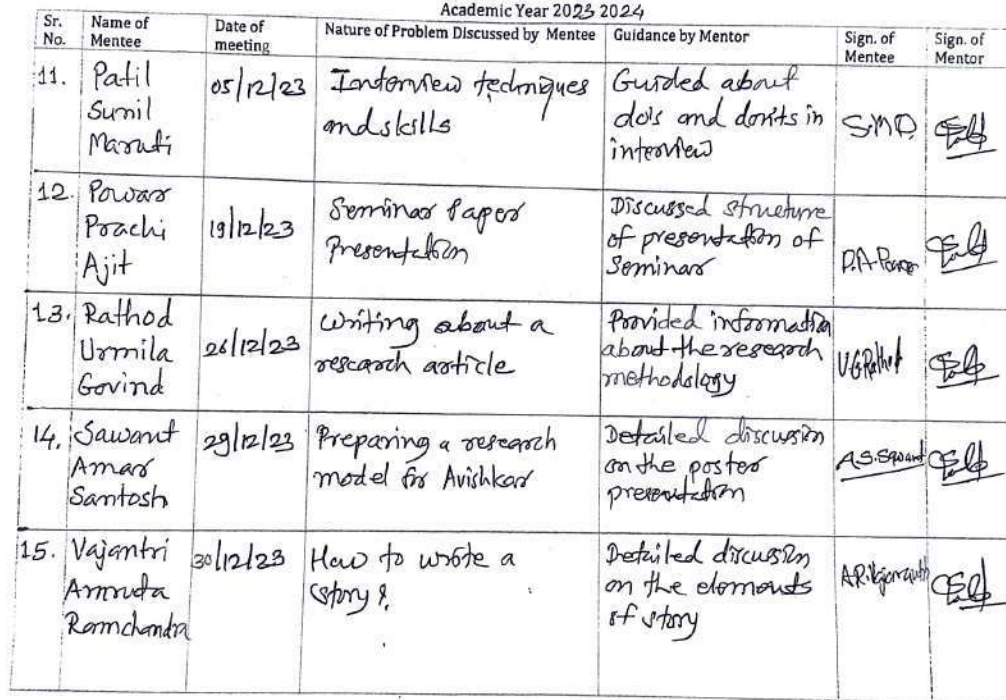 Academic Year 2023 2024
Sr. No.
Name of Mentee
Date of meeting
Nature of Problem Discussed by Mentee
Guidance by Mentor
Sign. of Mentee
Sign. of Mentor
11.
Patil
Sunil
Maruti
05/12/23
Interview techniques
and skills
Guided about
do's and don'ts in
interview
S.M.P.
12.
Powar
Prachi
Ajit
19/12/23
Seminar Paper
Presentation
Discussed structure
of presentation of
Seminar
P.A. Powar
13.
Rathod
Urmila
Govind
26/12/23
Writing about a
research article
Provided information
about the research
methodology
U.G. Rathod
14.
Sawant
Amar
Santosh
29/12/23
Preparing a research
model for Avishkar
Detailed discussion
on the poster
presentation
A.S. Sawant
15.
Vajantri
Amruta
Ramchandra
30/12/23
How to wrote a
story?
Detailed discussion
on the elements
of story